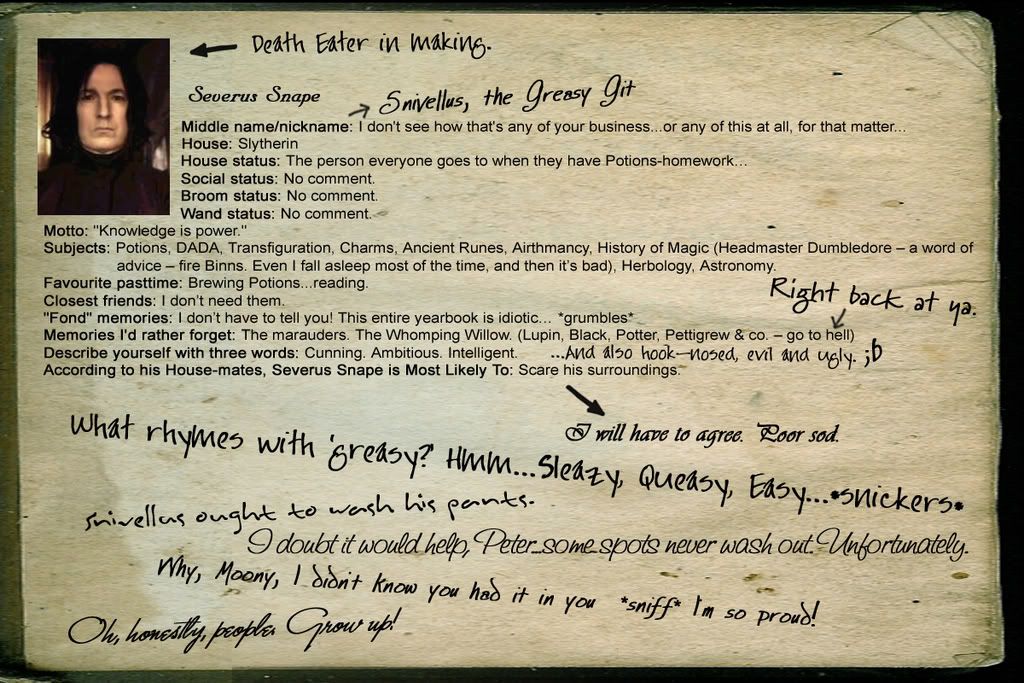 Death Eater in making.
Severus Snape
Snivellus, the Greasy Git
Middle name/nickname: I don't see how that's any of your business...or any of this at all, for that matter...
House: Slytherin
House status: The person everyone goes to when they have Potions-homework...
Social status: No comment.
Broom status: No comment.
Wand status: No comment.
Motto: "Knowledge is power."
Subjects: Potions, DADA, Transfiguration, Charms, Ancient Runes, Airthmancy, History of Magic (Headmaster Dumbledore – a word of
advice – fire Binns. Even I fall asleep most of the time, and then it's bad), Herbology, Astronomy.
Favourite pasttime: Brewing Potions...reading.
Closest friends: I don't need them.
Right back at ya.
"Fond" memories: I don't have to tell you! This entire yearbook is idiotic... *grumbles*
Memories I'd rather forget: The marauders. The Whomping Willow. (Lupin, Black, Potter, Pettigrew & co. – go to hell)
Describe yourself with three words: Cunning. Ambitious. Intelligent. ...And also hook-nosed, evil and ugly. ;b
According to his House-mates, Severus Snape is Most Likely To: Scare his surroundings.
I will have to agree. Poor sod.
What rhymes with 'greasy?' Hmm...Sleazy, Queasy, Easy...*snickers*
Snivellus ought to wash his pants.
I doubt it would help, Peter...some spots never wash out. Unfortunately.
Why, Moony, I didn't know you had it in you *sniff* I'm so proud!
Oh, honestly, people. Grow up!